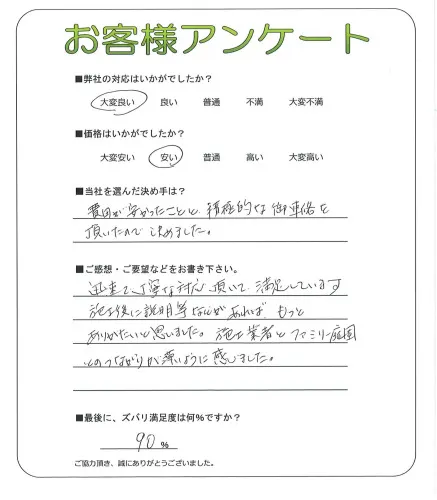 お客様アンケート
■弊社の対応はいかがでしたか？
大変良い 良い 普通 不満 大変不満
■価格はいかがでしたか？
大変安い 安い 普通 高い 大変高い
■当社を選んだ決め手は？
費用が安かったことと、積極的な御連絡を
頂いたので決めました。
■ご感想・ご要望などをお書き下さい。
迅速で丁寧な対応頂いて、満足しています
施工後に説明等なんかあれば、もっと
ありがたいと思いました。施工業者とファミリー庭園
とのつながりが薄いように感じました。
■最後に、ズバリ満足度は何％ですか？
90 %
ご協力頂き、誠にありがとうございました。